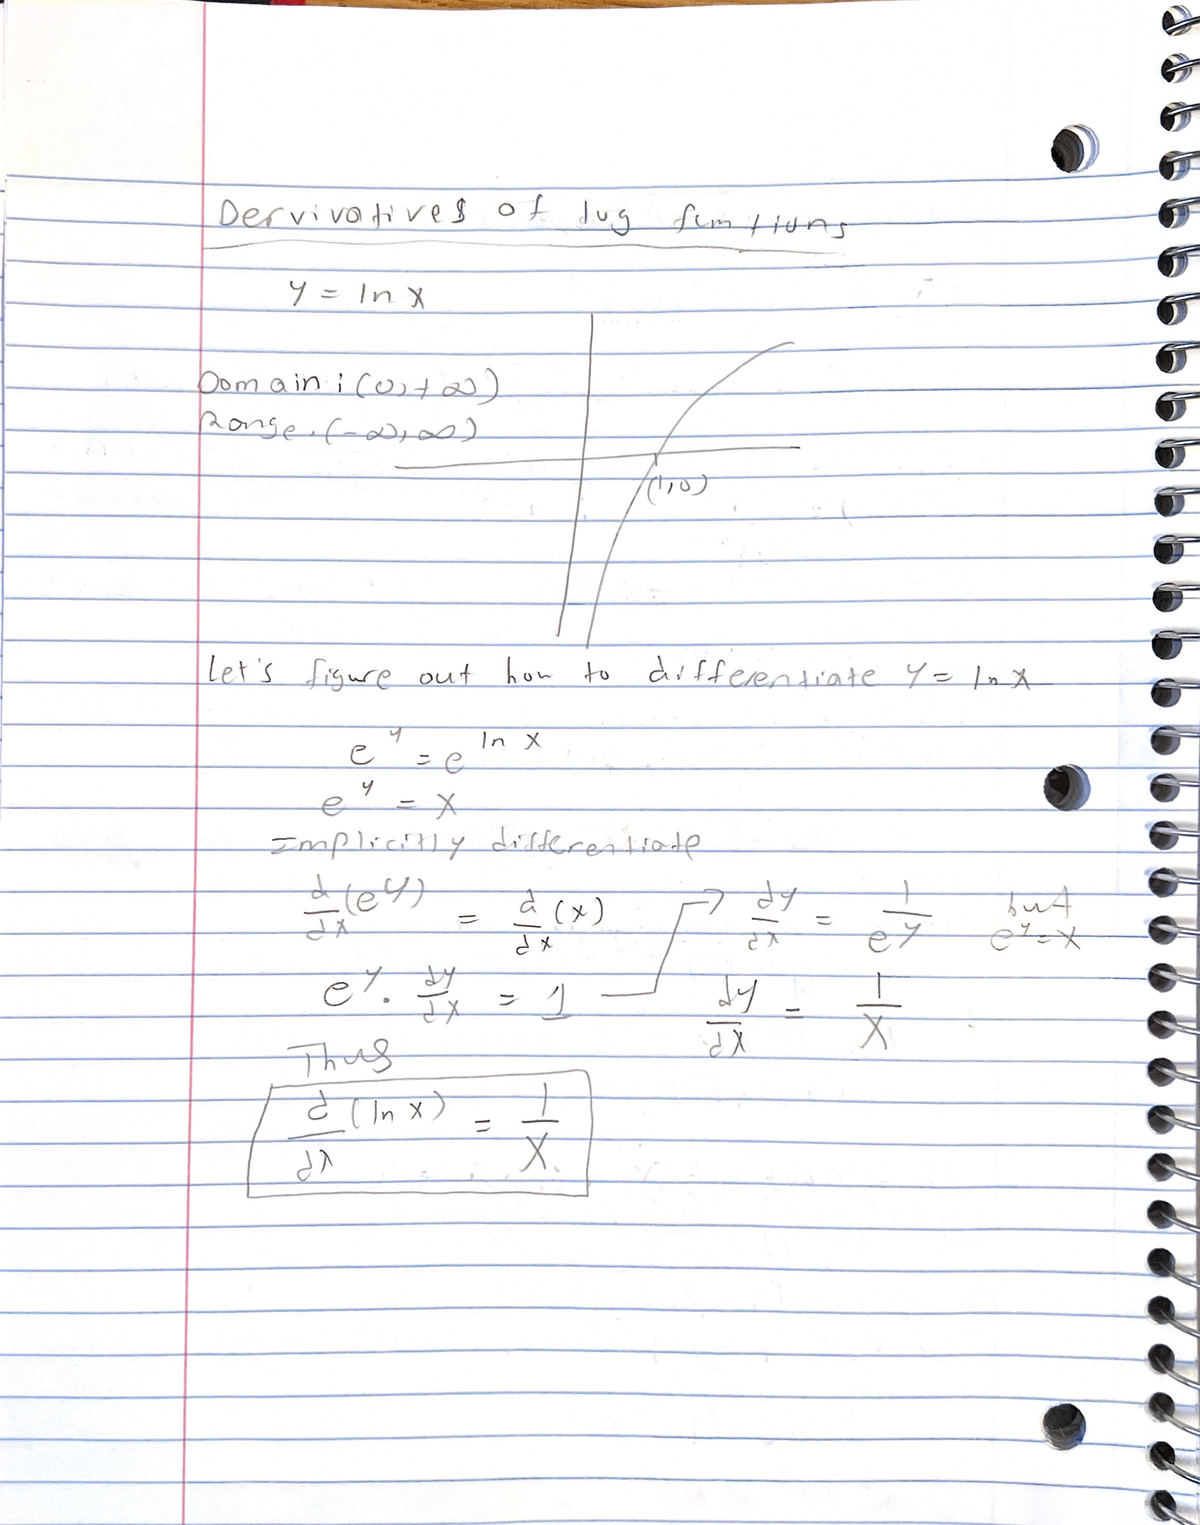 Dervivatives of log funtions
y = ln x
Domain: (0, +∞)
Range: (-∞, ∞)
(1,0)
Let's figure out how to differentiate y = ln x
e^y = e^ln x
e^y = x
Implicitly differentiate
d/dx (e^y) = d/dx (x) → dy/dx = 1/e^y but e^y = x
e^y · dy/dx = 1 dy/dx = 1/x
Thus
d/dx (ln x) = 1/x